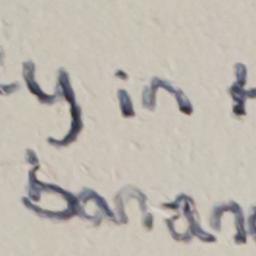 y in t
banan